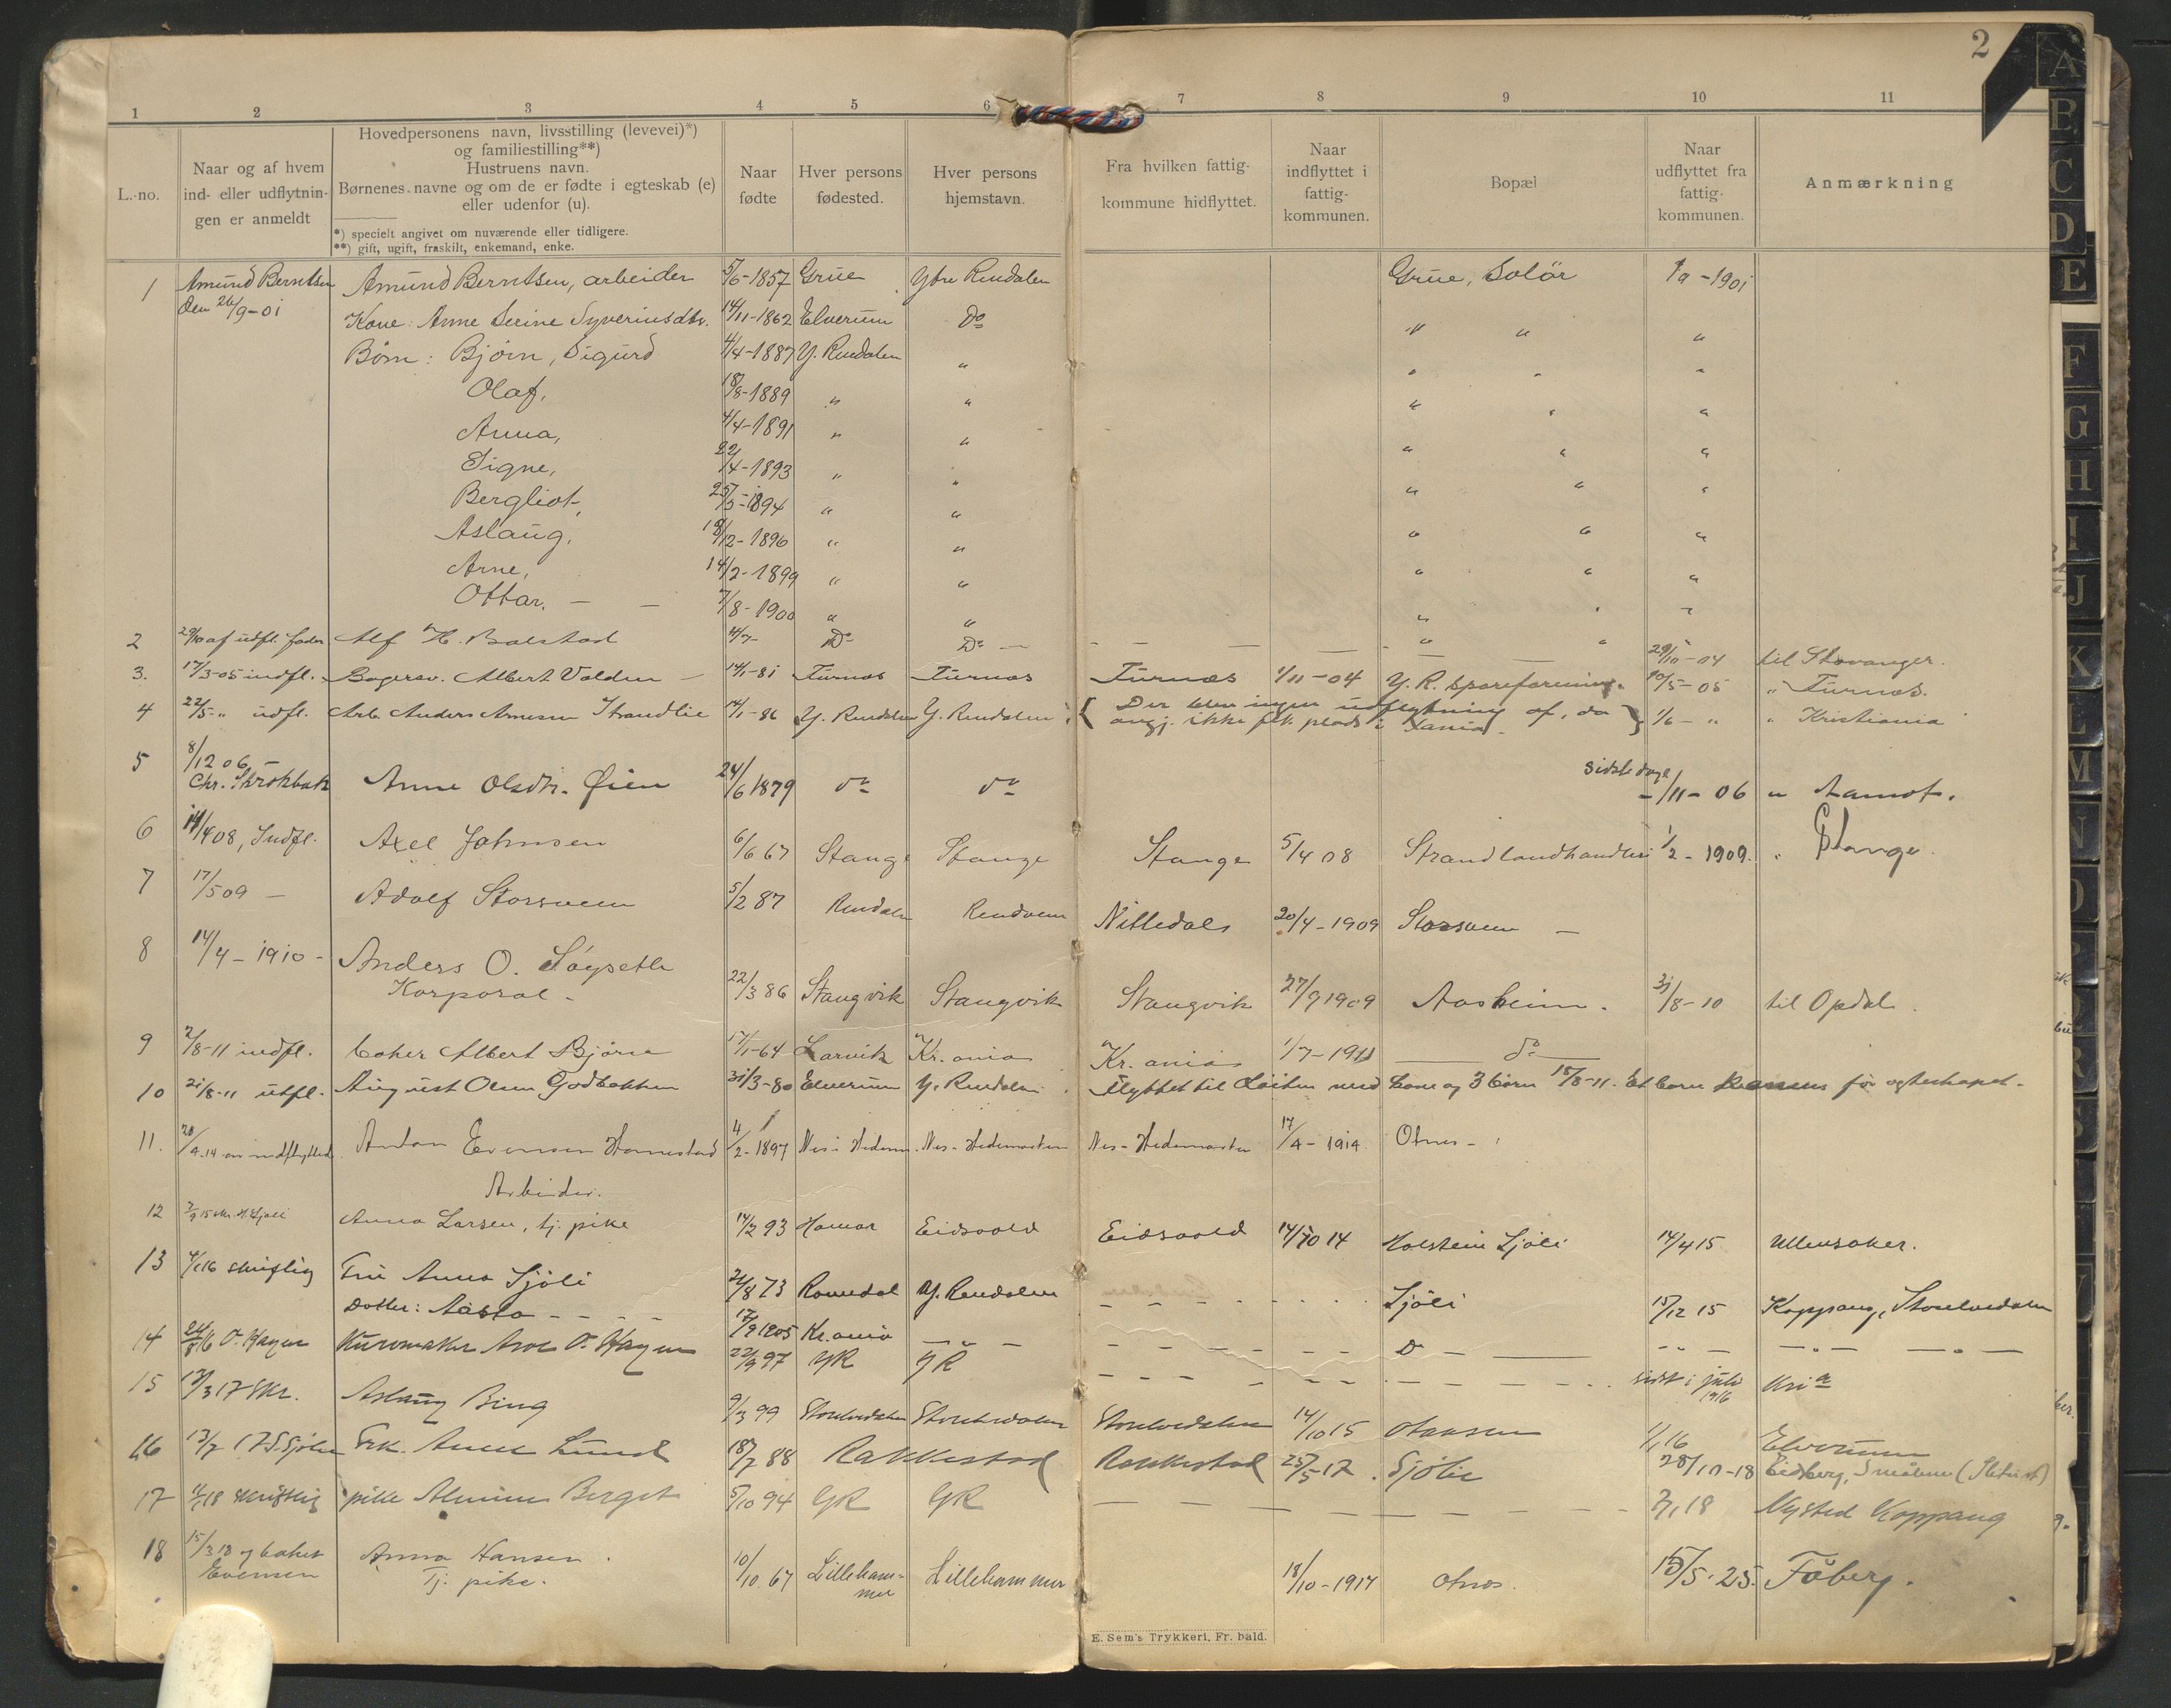 2
1 2 3 4 5 6 7 8 9 10 11
L.-no.
Naar og af hvem
ind- eller udflytnin-
gen er anmeldt
Hovedpersonens navn, livsstilling (levevei)*)
og familiestilling**)
Hustruens navn.
Børnenes navne og om de er fødte i egteskab (e)
eller udenfor (u).
*) specielt angivet om nuværende eller tidligere.
**) gift, ugift, fraskilt, enkemand, enke.
Naar
fødte
Hver persons
fødested.
Hver persons
hjemstavn.
Fra hvilken fattig-
kommune hidflyttet.
Naar
indflyttet i
fattig-
kommunen.
Bopæl
Naar
udflyttet fra
fattig-
kommunen.
Anmærkning
1 Amund Berntsen Amund Berntsen, arbeider 5/6-1857 Grue Ytre Rendalen Grue, Solör 1/9-1901
den 26/9-01 Kone: Anne Serine Syverinsdtr. 14/11-1862 Elverum Do " " "
Børn: Bjørn, Sigurd 4/4-1887 Y. Rendalen " " " "
Olaf, 18/8-1889 " " " " "
Anna, 4/4-1891 " " " " "
Signe, 22/4-1893 " " " " "
Bergliot, 25/5-1894 " " " " "
Aslaug, 18/12-1896 " " " " "
Arne, 14/2-1899 " " " " "
Ottar. — — 7/8-1900 " " " " "
2 29/10 af udfl. fader Alf H. Balstad Do Do — 29/10-04 til Stavanger.
3. 17/3-05 indfl. Bagersv. Albert Volden — 14/1-81 Furnæs Furnæs Furnæs 1/11-04 Y. R. spareforening. 10/5-05 " Furnæs.
4 22/5 " udfl. Arb. Anders Arnesen Strandlie 14/1-86 Y. Rendalen Y. Rendalen { Der blev ingen udflytning af, da } 1/6- " " Kristiania
angj. ikke fik plads i
5 8/12 06 — Anne Olsdtr. Øien 24/6 1879 do do sidste dage -/11-06 " Aamot.
Chr.
6 14/4 08, Indfl. Axel Johnsen 6/6 67 Stange Stange Stange 5/4 08 Strand landhandleri 1/2-1909. " Stange.
7 17/5 09 — Adolf Storsveen 5/2 87 Rendalen Rendalen Nittedals 20/4-1909 Storsveen —
8 14/4-1910- Anders O. Søyseth
Korporal - 22/3 86 Stangvik Stangvik Stangvik 27/9 1909 Aasheim. 31/8-10 til Opdal.
9 2/8-11 indfl. baker Albert Bjørn 17/1-64 Larvik Kr. ania Kr. ania 1/7-1911 do
10 21/8-11 utfl. August Olsen Godbakken 31/3-80 Elverum Y. Rendalen Flyttet til Løiten med kone og 3 børn 15/8-11. Et barn før egteskapet.
11. 20/4.14 indflytted Anton Evensen Hornestad 4/2-1897 Nes i Hedem. Nes-Hedemarken Nes-Hedemarken 17/4-1914 Otnes -
Arbeider.
12 Anna Larsen, tj. pike 14/2 93 Hamar Eidsvold Eidsvold 14/10 14 Holstein Sjöli 14/4 15 Ullensaker.
13 4/1 16 skriftlig Fru Anna Sjöli 21/8 73 Romedal Y. Rendalen Sjöli 15/12 15 Koppang, Storelvedalen
Datter: Aasta - - - 17/9 1905 Kr.ania — " —
14 O. Hagen Kurvmaker O. Hagen 22/9 97 YR YR sidst i juli 1916 Kria
15 17/3 17 Skr. Aslaug Bing 9/3 99 Storelvedalen Storelvedalen Storelvedalen 14/10 15 1/1 16 Elverum
16 13/7 17 S. Sjölie Frk. Anna Lund 18/7 88 Rakkestad Rakkestad 25/5 17. Sjölie 28/10-18 Eidsberg, Smålene
17 4/1 18 skriftlig pike Almine Berget 5/10 94 YR YR 2/1 18 Nysted Koppang
18 15/3 18 baker Anna Hansen. 10/10 67 Lilleham- Lillehammer 18/10-1917 Otnes. 15/5.25. Fåberg.
Evensen Tj. pike. mer
E. Sem's Trykkeri, Fr. hald.
A
B
C
D
E
F
G
H
I
J
K
L
M
N
O
P
R
S